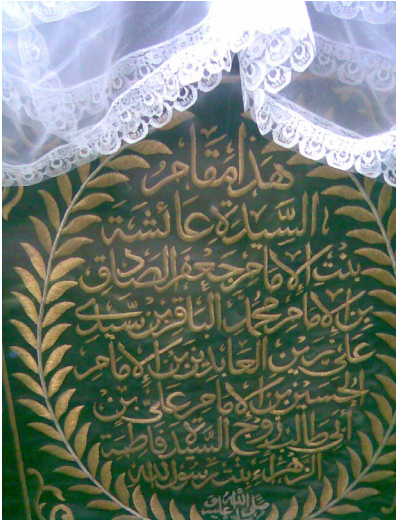 هَذَا مَقَامُ
السَّيِّدَةِ عَائِشَةَ
بِنْتِ الإِمَامِ جَعْفَرِ الصَّادِقِ
بْنِ الإِمَامِ مُحَمَّدِ البَاقِرِ بْنِ سَيِّدِي
عَلِيِّ زَيْنِ العَابِدِينَ بْنِ الإِمَامِ
الحُسَيْنِ بْنِ الإِمَامِ عَلِيِّ بْنِ
أَبِي طَالِبٍ زَوْجِ السَّيِّدَةِ فَاطِمَةَ
الزَّهْرَاءِ بِنْتِ رَسُولِ اللَّهِ
صَلَّى اللَّهُ عَلَيْهِ وَسَلَّمَ